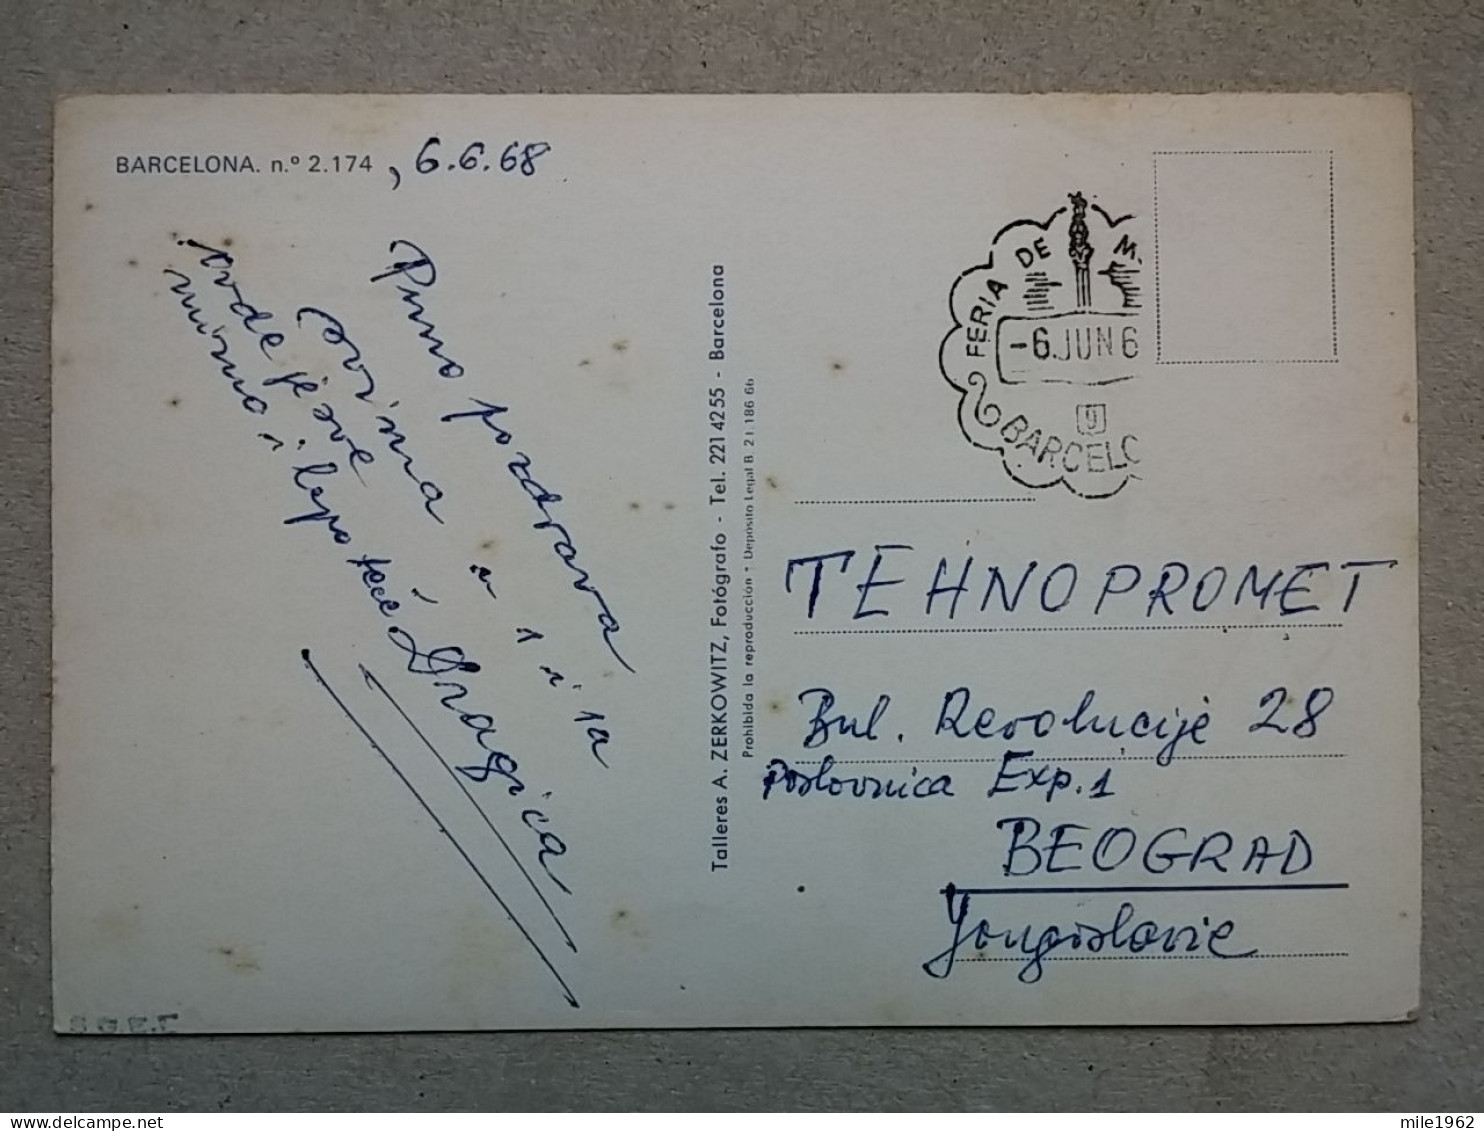 BARCELONA. n.º 2.174 , 6.6.68
Puno pozdrava
svima
ovde je sve
mirno i lepo
Dragica
Talleres A. ZERKOWITZ, Fotógrafo - Tel. 221 42 55 - Barcelona
Prohibida la reproducción - Depósito Legal B. 21.186 66
FERIA DE M.
-6.JUN 6
BARCELO
TEHNOPROMET
Bul. Revolucije 28
Poslovnica Exp. 1
BEOGRAD
Yougoslavie
S.G.E.
mile1962